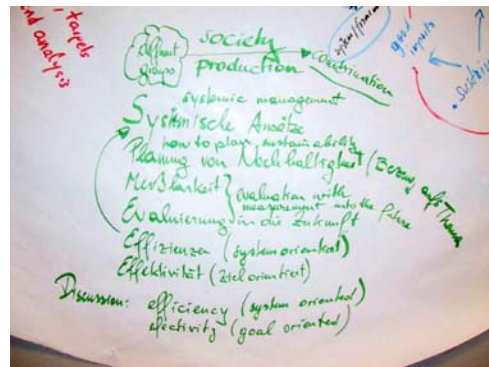 , targets
and analysis
different
groups
society
production
contribution
system/
good
impacts
systemic management
Systemische Ansätze
how to plan sustainability
Planung von Nachhaltigkeit (Bezug aufs Thema
Meßbarkeit
evaluation with
measurement into the future
Evaluierung in die Zukunft
Effizienzen (system orientiert)
Effektivität (ziel orientiert)
Discussion: efficiency (system oriented)
efectivity (goal oriented)